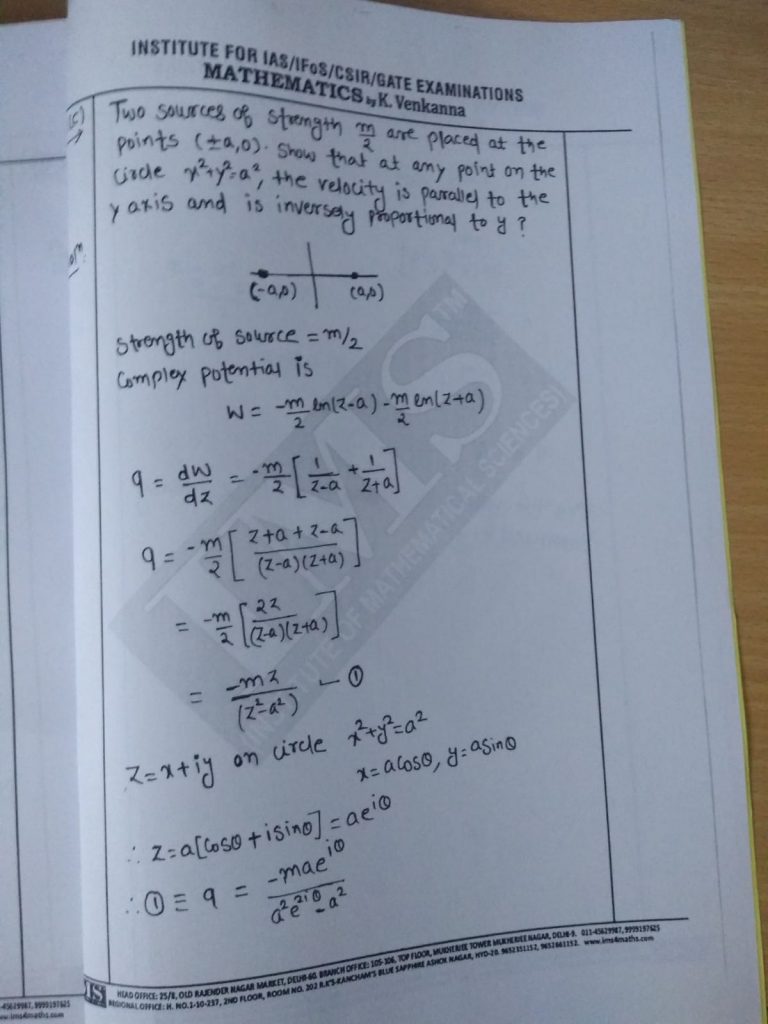 INSTITUTE FOR IAS/IFoS/CSIR/GATE EXAMINATIONS
MATHEMATICS by K. Venkanna
(c) Two sources of strength m/2 are placed at the
points (±a,0). Show that at any point on the
circle x²+y²=a², the velocity is parallel to the
y axis and is inversely proportional to y ?
(-a,0) (a,0)
strength of source = m/2
Complex potential is
W = -m/2 ln(z-a) - m/2 ln(z+a)
q = dW/dz = -m/2 [1/(z-a) + 1/(z+a)]
q = -m/2 [(z+a+z-a)/((z-a)(z+a))]
= -m/2 [2z/((z-a)(z+a))]
= -mz/(z²-a²) — ①
z=x+iy on circle x²+y²=a²
x=acosθ, y=asinθ
∴ z=a[cosθ+isinθ]=ae^{iθ}
∴ ① ≡ q = -mae^{iθ}/(a²e^{2iθ}-a²)
IMS™
INSTITUTE OF MATHEMATICAL SCIENCES
HEAD OFFICE: 25/8, OLD RAJENDER NAGAR MARKET, DELHI-60. BRANCH OFFICE: 105-106, TOP FLOOR, MUKHERJEE TOWER MUKHERJEE NAGAR, DELHI-9. 011-45629987, 9999197625
REGIONAL OFFICE: H. NO.1-10-237, 2ND FLOOR, ROOM NO. 202 R.K'S-KANCHAM'S BLUE SAPPHIRE ASHOK NAGAR, HYD-20. 9652351152, 9652661152. www.ims4maths.com
-45629987, 9999197625
www.ims4maths.com